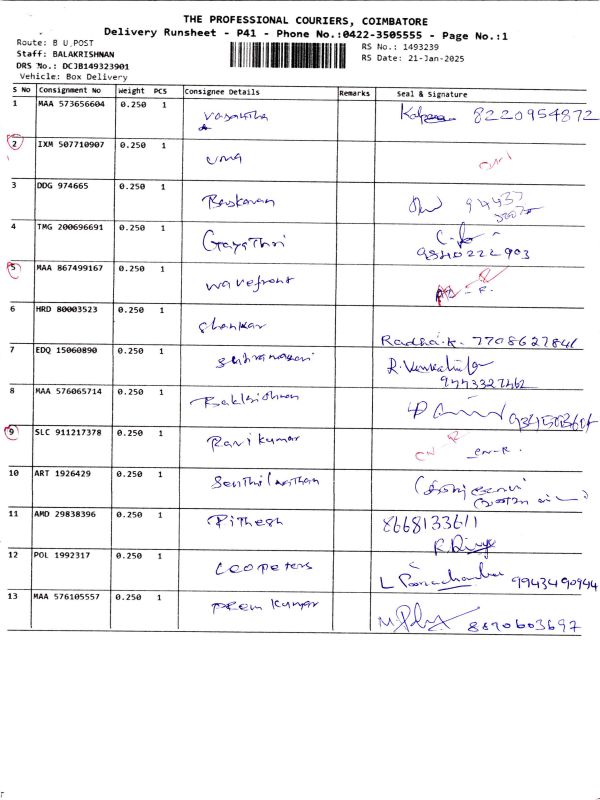 THE PROFESSIONAL COURIERS, COIMBATORE
Delivery Runsheet - P41 - Phone No.:0422-3505555 - Page No.:1
Route: B U POST
RS No.: 1493239
Staff: BALAKRISHNAN
RS Date: 21-Jan-2025
DRS No.: DCJB149323901
Vehicle: Box Delivery
S No Consignment No Weight PCS Consignee Details Remarks Seal & Signature
1 MAA 573656604 0.250 1 Vasantha 8220954872
2 IXM 507710907 0.250 1 uma
3 DDG 974665 0.250 1 Baskaran
4 TMG 200696691 0.250 1 Gayathri
9840222903
5 MAA 867499167 0.250 1 wavefront
6 HRD 80003523 0.250 1 Shankar
Radha.K. 7708627841
7 EDQ 15060890 0.250 1
9443327462
8 MAA 576065714 0.250 1
9 SLC 911217378 0.250 1 Ravi kumar
10 ART 1926429 0.250 1 Senthilnathan
11 AMD 29838396 0.250 1 Pithesh 8668133611
R. Divya
12 POL 1992317 0.250 1 Leopeters
9943490944
13 MAA 576105557 0.250 1 prem kumar
8870603697